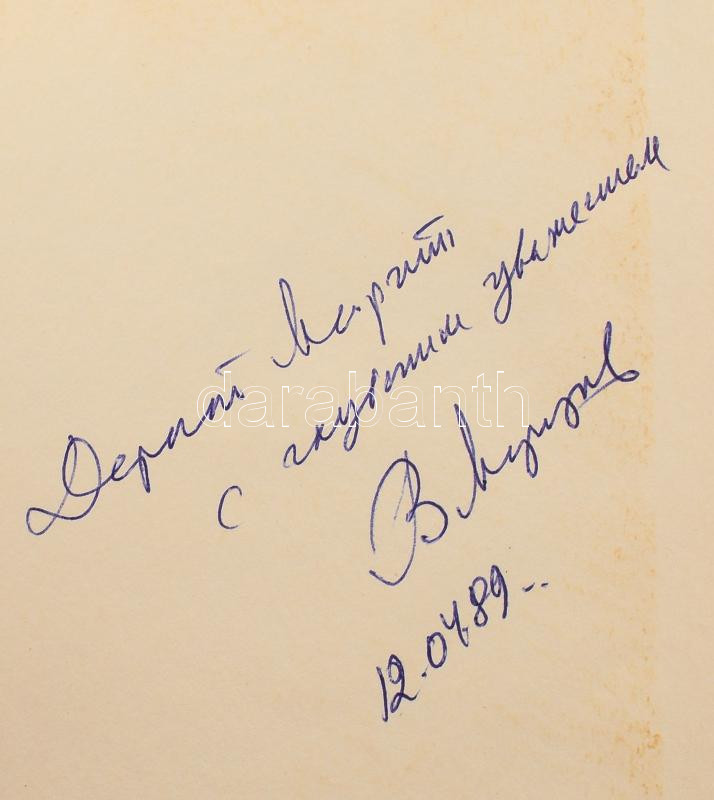 Дорогой Маргит
с глубоким уважением
В.
12.04.89
darabanth